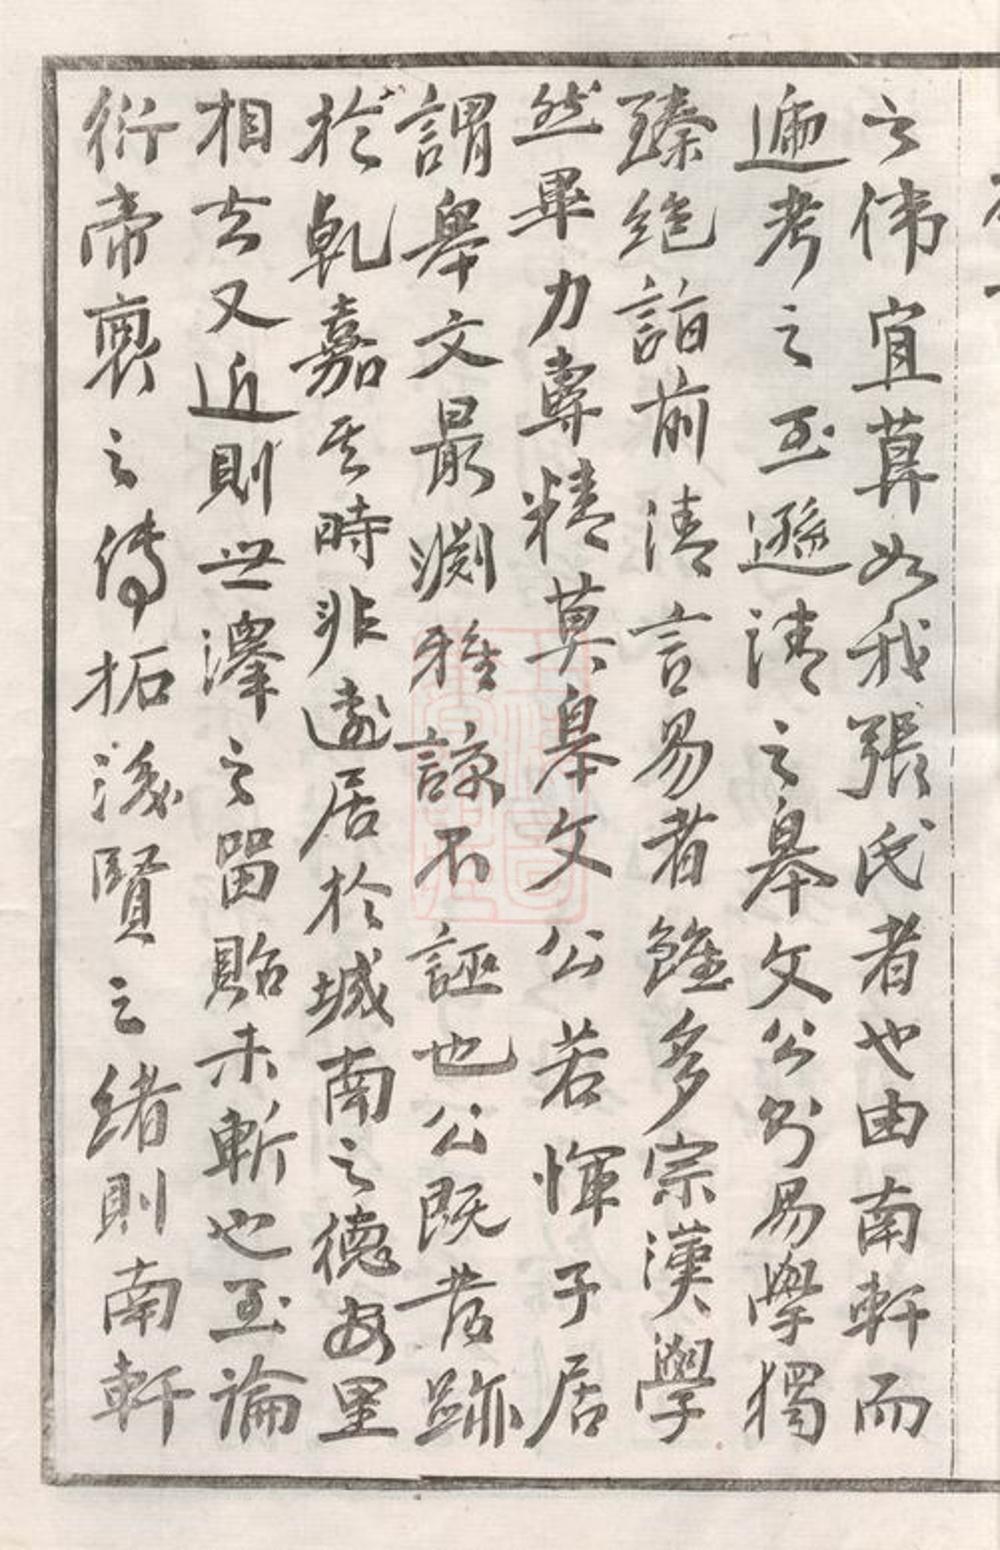 之偉宜莫如我張氏者也由南軒而
遞考之至遜清之皋文公易學獨
臻絕詣前清言易者雖多宗漢學
然畢力專精莫皋文公若惲子居
謂皋文最淵雅諒不誣也公既發跡
於乾嘉其時非遠居於城南之德安里
相去又近則世澤之留貽未斬也至論
衍帝裏之傳拓後賢之緒則南軒